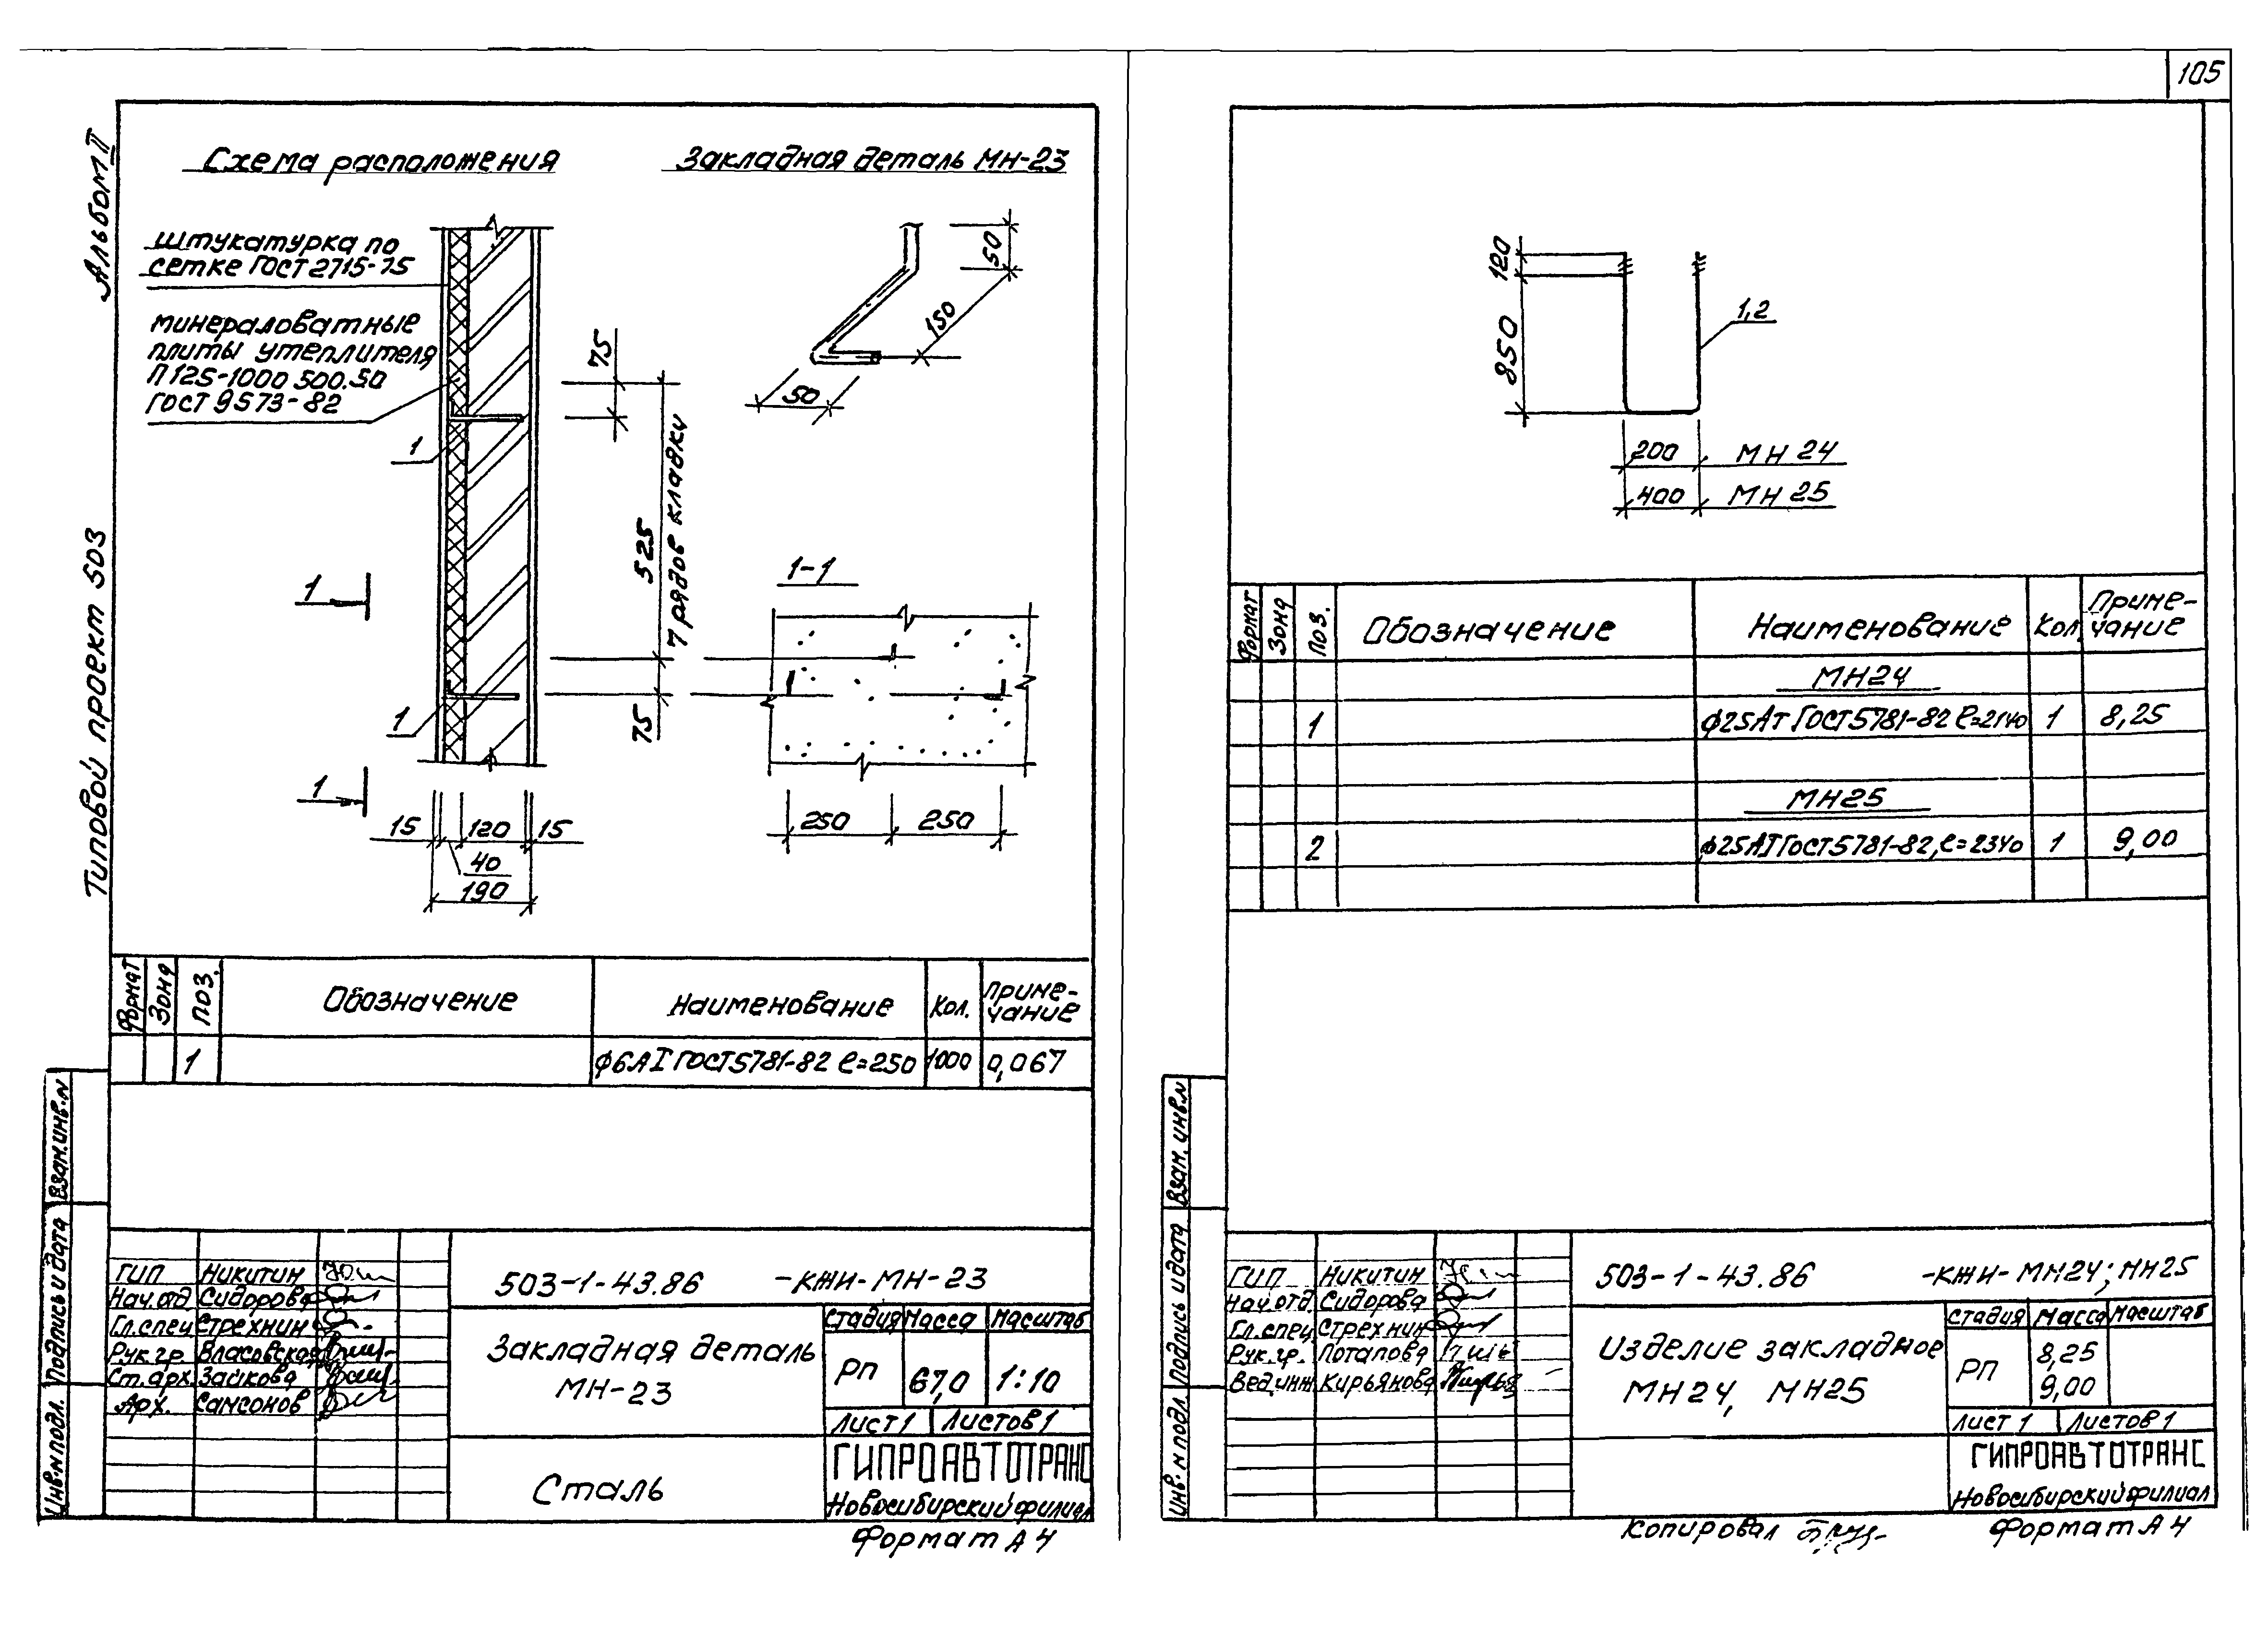 105
Альбом II
Типовой проект 503
Схема расположения
Закладная деталь МН-23
Штукатурка по
сетке ГОСТ 2715-75
минераловатные
плиты утеплителя
П125-1000 500.50
ГОСТ 9573-82
1
1
1
1
75
525
7 рядов кладки
75
50
150
50
1-1
15
120
15
40
190
250
250
Формат
Зона
Поз.
Обозначение
Наименование
Кол.
Приме-
чание
1
ф6АI ГОСТ5781-82 ℓ=250
1000
0,067
Взам.инв.N
Подпись и дата
Инв.N подл.
ГИП Никитин
Нач.отд Сидорова
Гл.спец Стрехнин
Рук.гр. Власовская
Ст.арх. Зайкова
Арх. Самсонов
503-1-43.86 -КЖИ-МН-23
Закладная деталь
МН-23
Стадия Масса Масштаб
РП 67,0 1:10
Лист 1 Листов 1
Сталь
ГИПРОАВТОТРАНС
Новосибирский филиал
Формат А4
120
850
1,2
200 МН 24
400 МН 25
Формат
Зона
Поз.
Обозначение
Наименование
Кол.
Приме-
чание
МН24
1 ф25АI ГОСТ5781-82 ℓ=2140 1 8,25
МН25
2 ф25АI ГОСТ5781-82, ℓ=2340 1 9,00
Взам. инв.N
Подпись и дата
Инв. N подл.
ГИП Никитин
Нач.отд. Сидорова
Гл.спец. Стрехнин
Рук.гр. Потапова
Вед.инж. Кирьянова
503-1-43.86 -КЖИ-МН24; МН25
Изделие закладное
МН24, МН25
Стадия Масса Масштаб
РП
8,25
9,00
Лист 1 Листов 1
ГИПРОАВТОТРАНС
Новосибирский филиал
Копировал
Формат А4